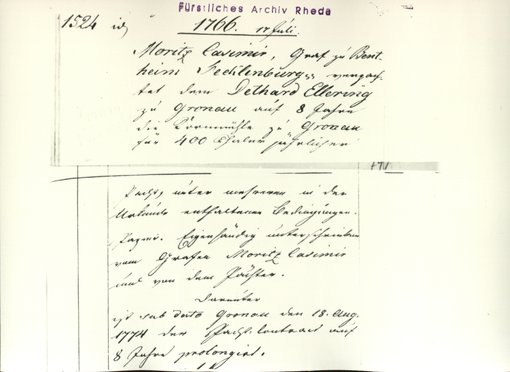 Fürstliches Archiv Rheda
1524 1766. 17 Juli.
Moritz Casimir, Graf zu Bent-
heim Tecklenburg, verpach-
tet dem Dethard Ellering
zu Gronau auf 8 Jahre
die Kornmühle zu Gronau
für 400 Thaler jährlicher
Pacht, unter mehreren in der
Urkunde enthaltenen Bedingungen.
Papier. Eigenhändig unterschrieben
vom Grafen Moritz Casimir
und von dem Pächter.
Darunter
ist sub dato Gronau den 18. Aug.
1774 der Pacht-Contract auf
8 Jahre prolongirt.